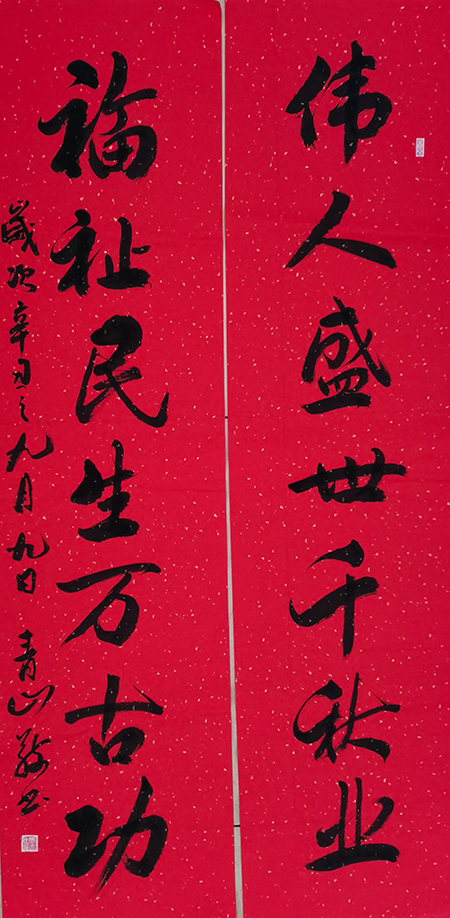 伟人盛世千秋业
福祉民生万古功
歲次辛丑之九月九日 青山書